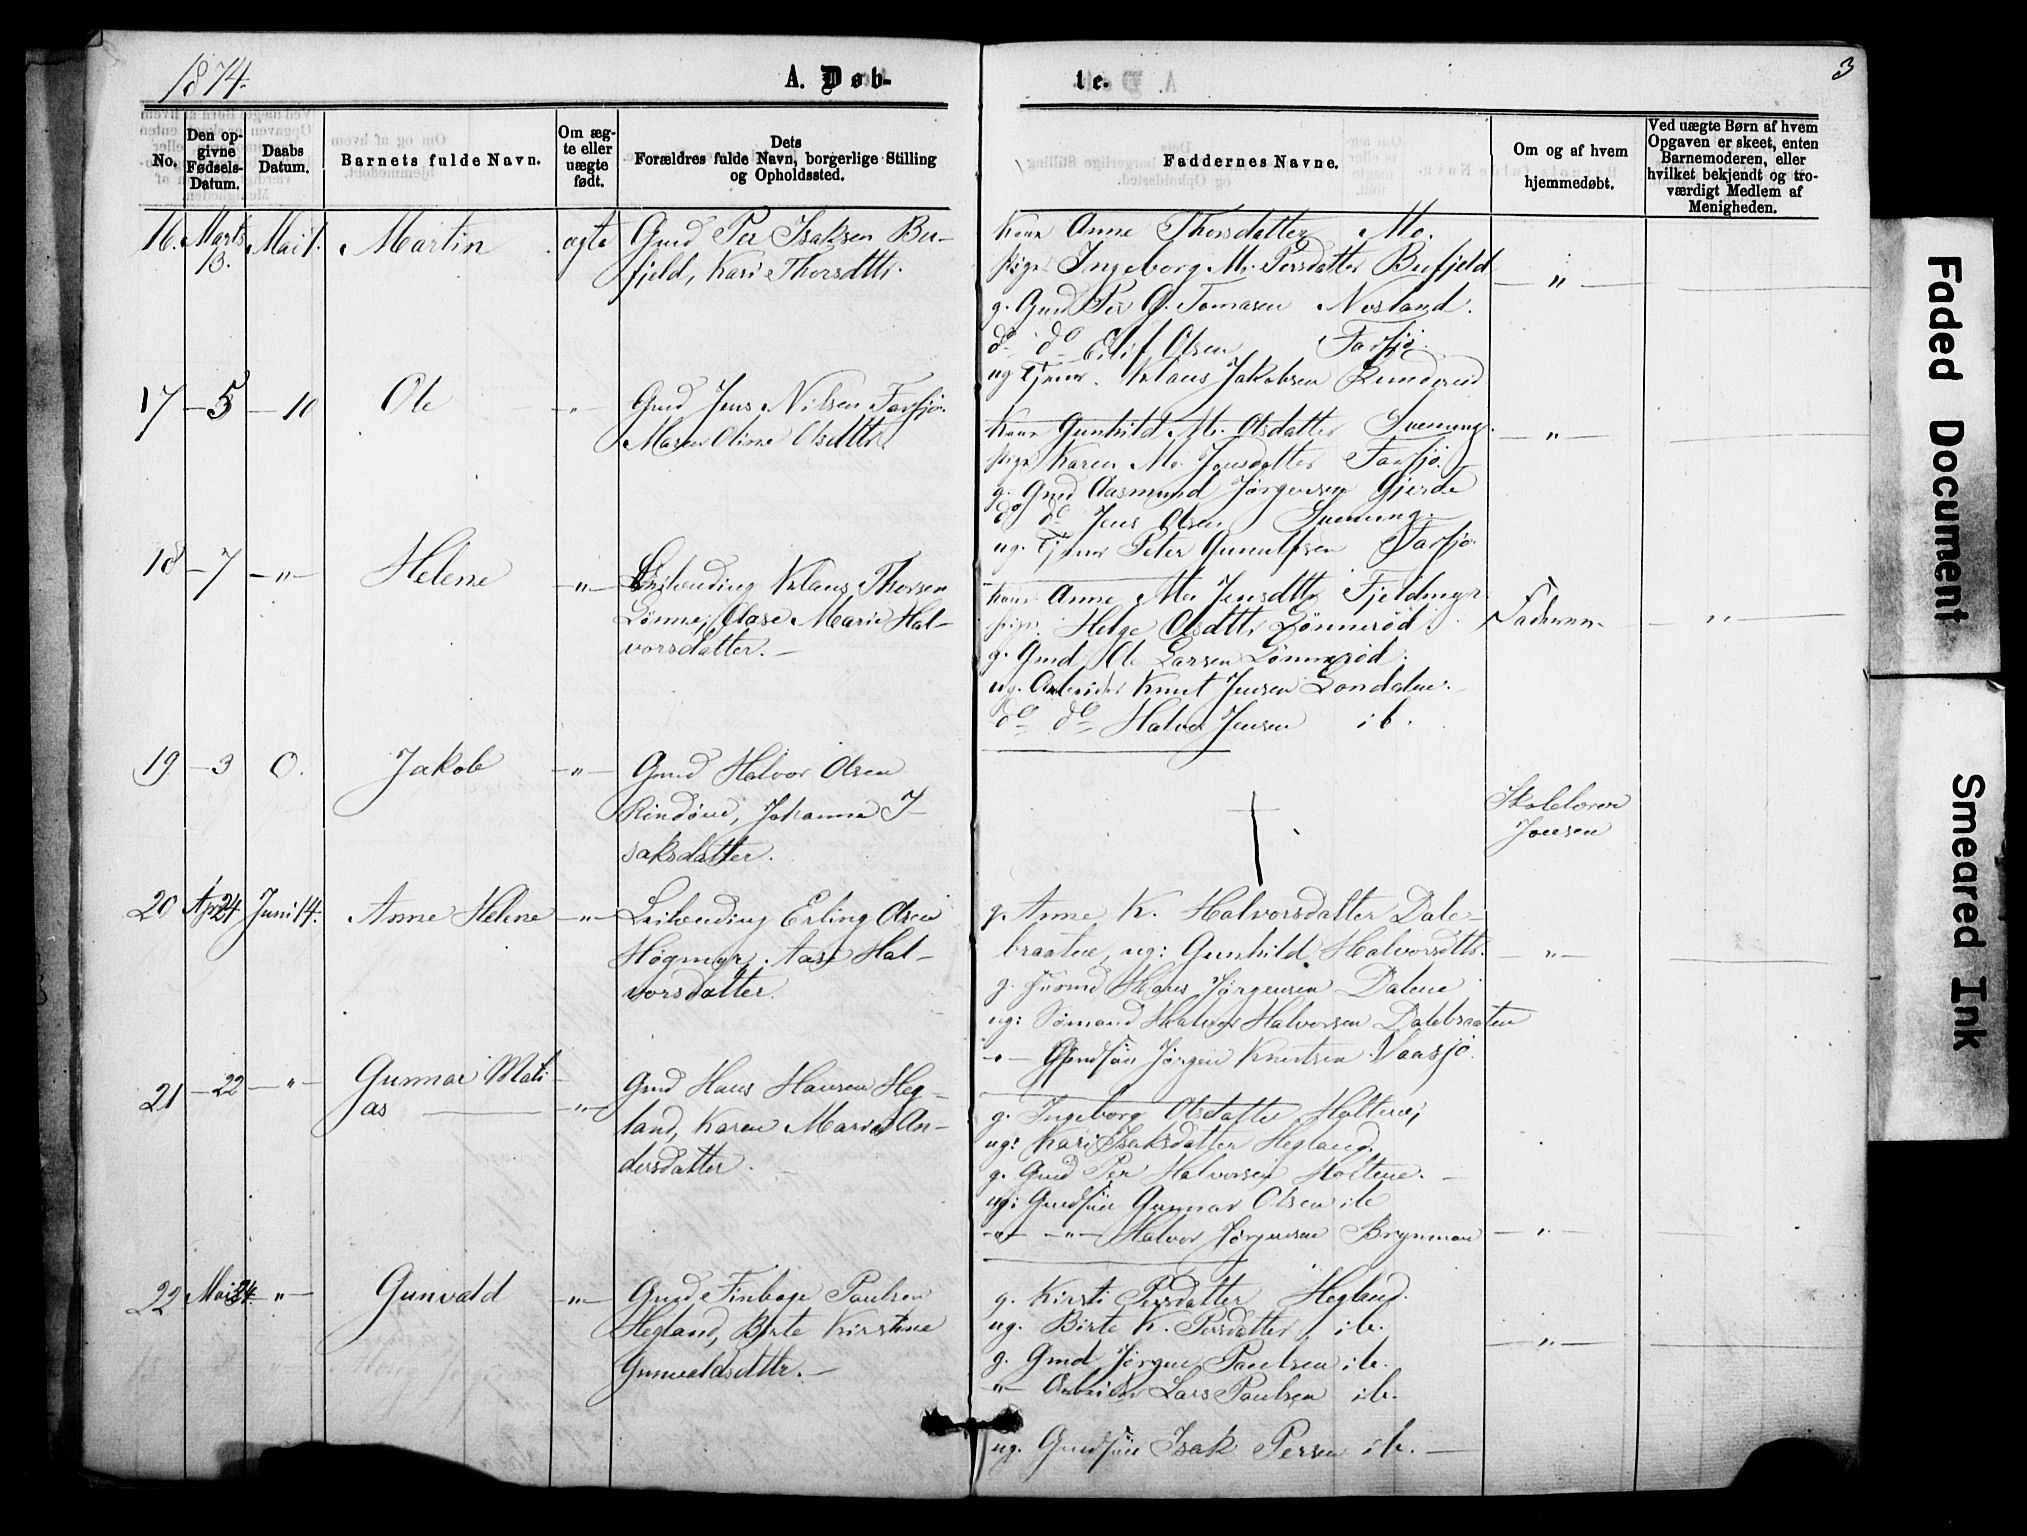 1874.
A. Døb-
te.
3
No.
Den op-
givne
Fødsels-
Datum.
Daabs
Datum.
Barnets fulde Navn.
Om æg-
te eller
uægte
født.
Dets
Forældres fulde Navn, borgerlige Stilling
og Opholdssted.
Faddernes Navne.
Om og af hvem
hjemmedøbt.
Ved uægte Børn af hvem
Opgaven er skeet, enten
Barnemoderen, eller
hvilket bekjendt og tro-
værdigt Medlem af
Menigheden.
16. Marts 13. Mai 1. Martin ægte
Gmd Per Isaksen Bu-
fjeld, Kari Thorsdttr.
Kone Anne Thorsdatter Mo.
Pige Ingeborg M. Persdatter Bufjeld
g. Gmd Per G. Tomasen Nesland.
do do Eilif Olsen Farsjø.
ug Tjener Klaus Jakobsen
"
17 - 5 - 10 Ole - " -
Gmd Jens Nilsen Farsjø.
Maren Oline Olsdttr.
Kone Gunhild M. Olsdatter Svenung.
Pige Karen M. Jensdatter Farsjø.
g. Gmd Aasmund Jørgensen Gjerde
do do Jens Olsen Svenung.
ug. Tjener Peter Gunulfsen Farsjø.
- " -
18 - 7 - " - Helene - " -
Leilænding Klaus Thorsen
Lønne, Aase Marie Hal-
vorsdatter. -
Kone Anne M. Jensdttr Fjeldmyr
Pige Helge Olsdttr Lønnerød.
g. Gmd Ole Larsen Lønnerød.
ug. Arbeider Knut Jensen Londalen.
do do Halvor Jensen ib.
Faderen.
- " -
19 - 3 0. Jakob - " -
Gmd Halvor Olsen
Johanne I-
saksdatter.
Skolelærer
Jensen
20 Apr 24 Juni 14. Anne Helene - " -
Leilænding Erling Olsen
Høgmyr. Aase Hal-
vorsdatter.
g. Anne K. Halvorsdatter Dale-
braatene, ug: Gunhild Halvorsdttr.
g. Hans Jørgensen Dalene
ug: Sømand Halvor Halvorsen Dalebraaten
- " - Gmdsøn Jørgen Knutsen Vaasjø.
- " -
21 - 22 - " - Gunnar Mati-
as - " -
Gmd Hans Hansen Heg-
land, Karen Marie An-
dersdatter. -
g. Ingeborg Olsdatter Holtene;
ug: Kari Isaksdatter Hegland.
g. Gmd Per Halvorsen Holtene. -
ug: Gmdsøn Gunnar Olsen ib
- " - - " - Halvor Jørgensen Brynmoen
- " -
22 Mai 24 - " - Gunvald - " -
Gmd Finboge Paulsen
Hegland, Birte Kirstine
Gunvaldsdttr. -
g. Kirsti Persdatter Hegland.
ug. Birte K. Persdatter ib.
g. Gmd Jørgen Paulsen ib.
" - Arbeider Lars Paulsen ib.
ug. Gmdsøn Isak Persen ib. -
- " -
Faded Document
Smeared Ink